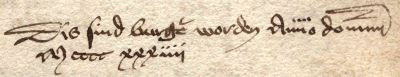 Dis sind burg̃ worden Anno domini
Mcccc xxxiiii